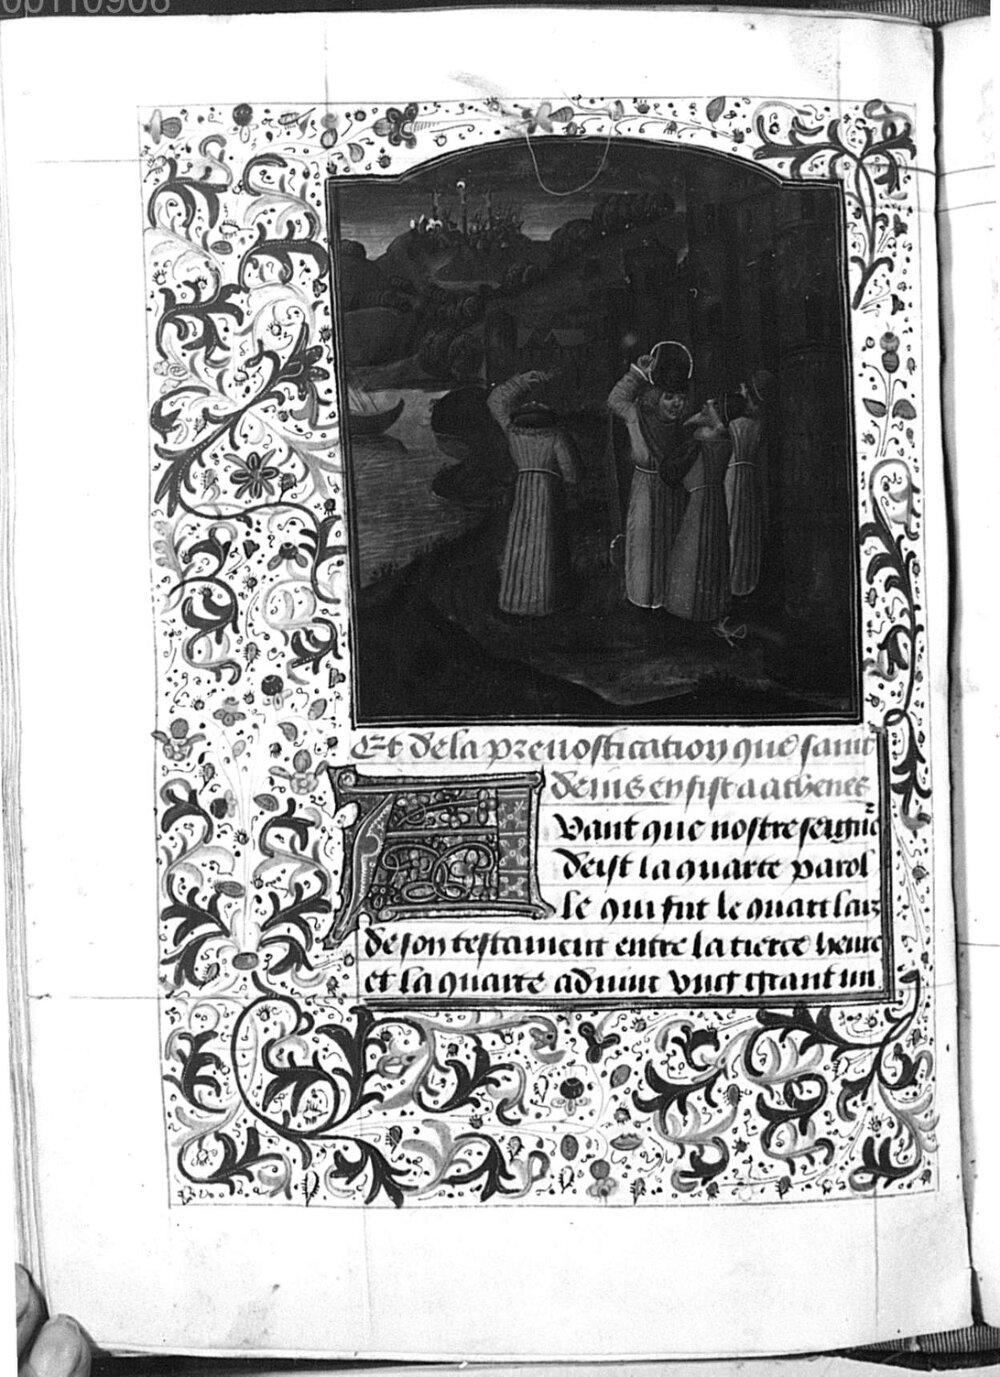 0b110908
Et de la prenostication que saint
denis en fist a athenes
Avant que nostre seigne
deist la quarte parol
le qui fut le quart laiz
de son testament entre la tierce heure
et la quarte advint ung grant mi